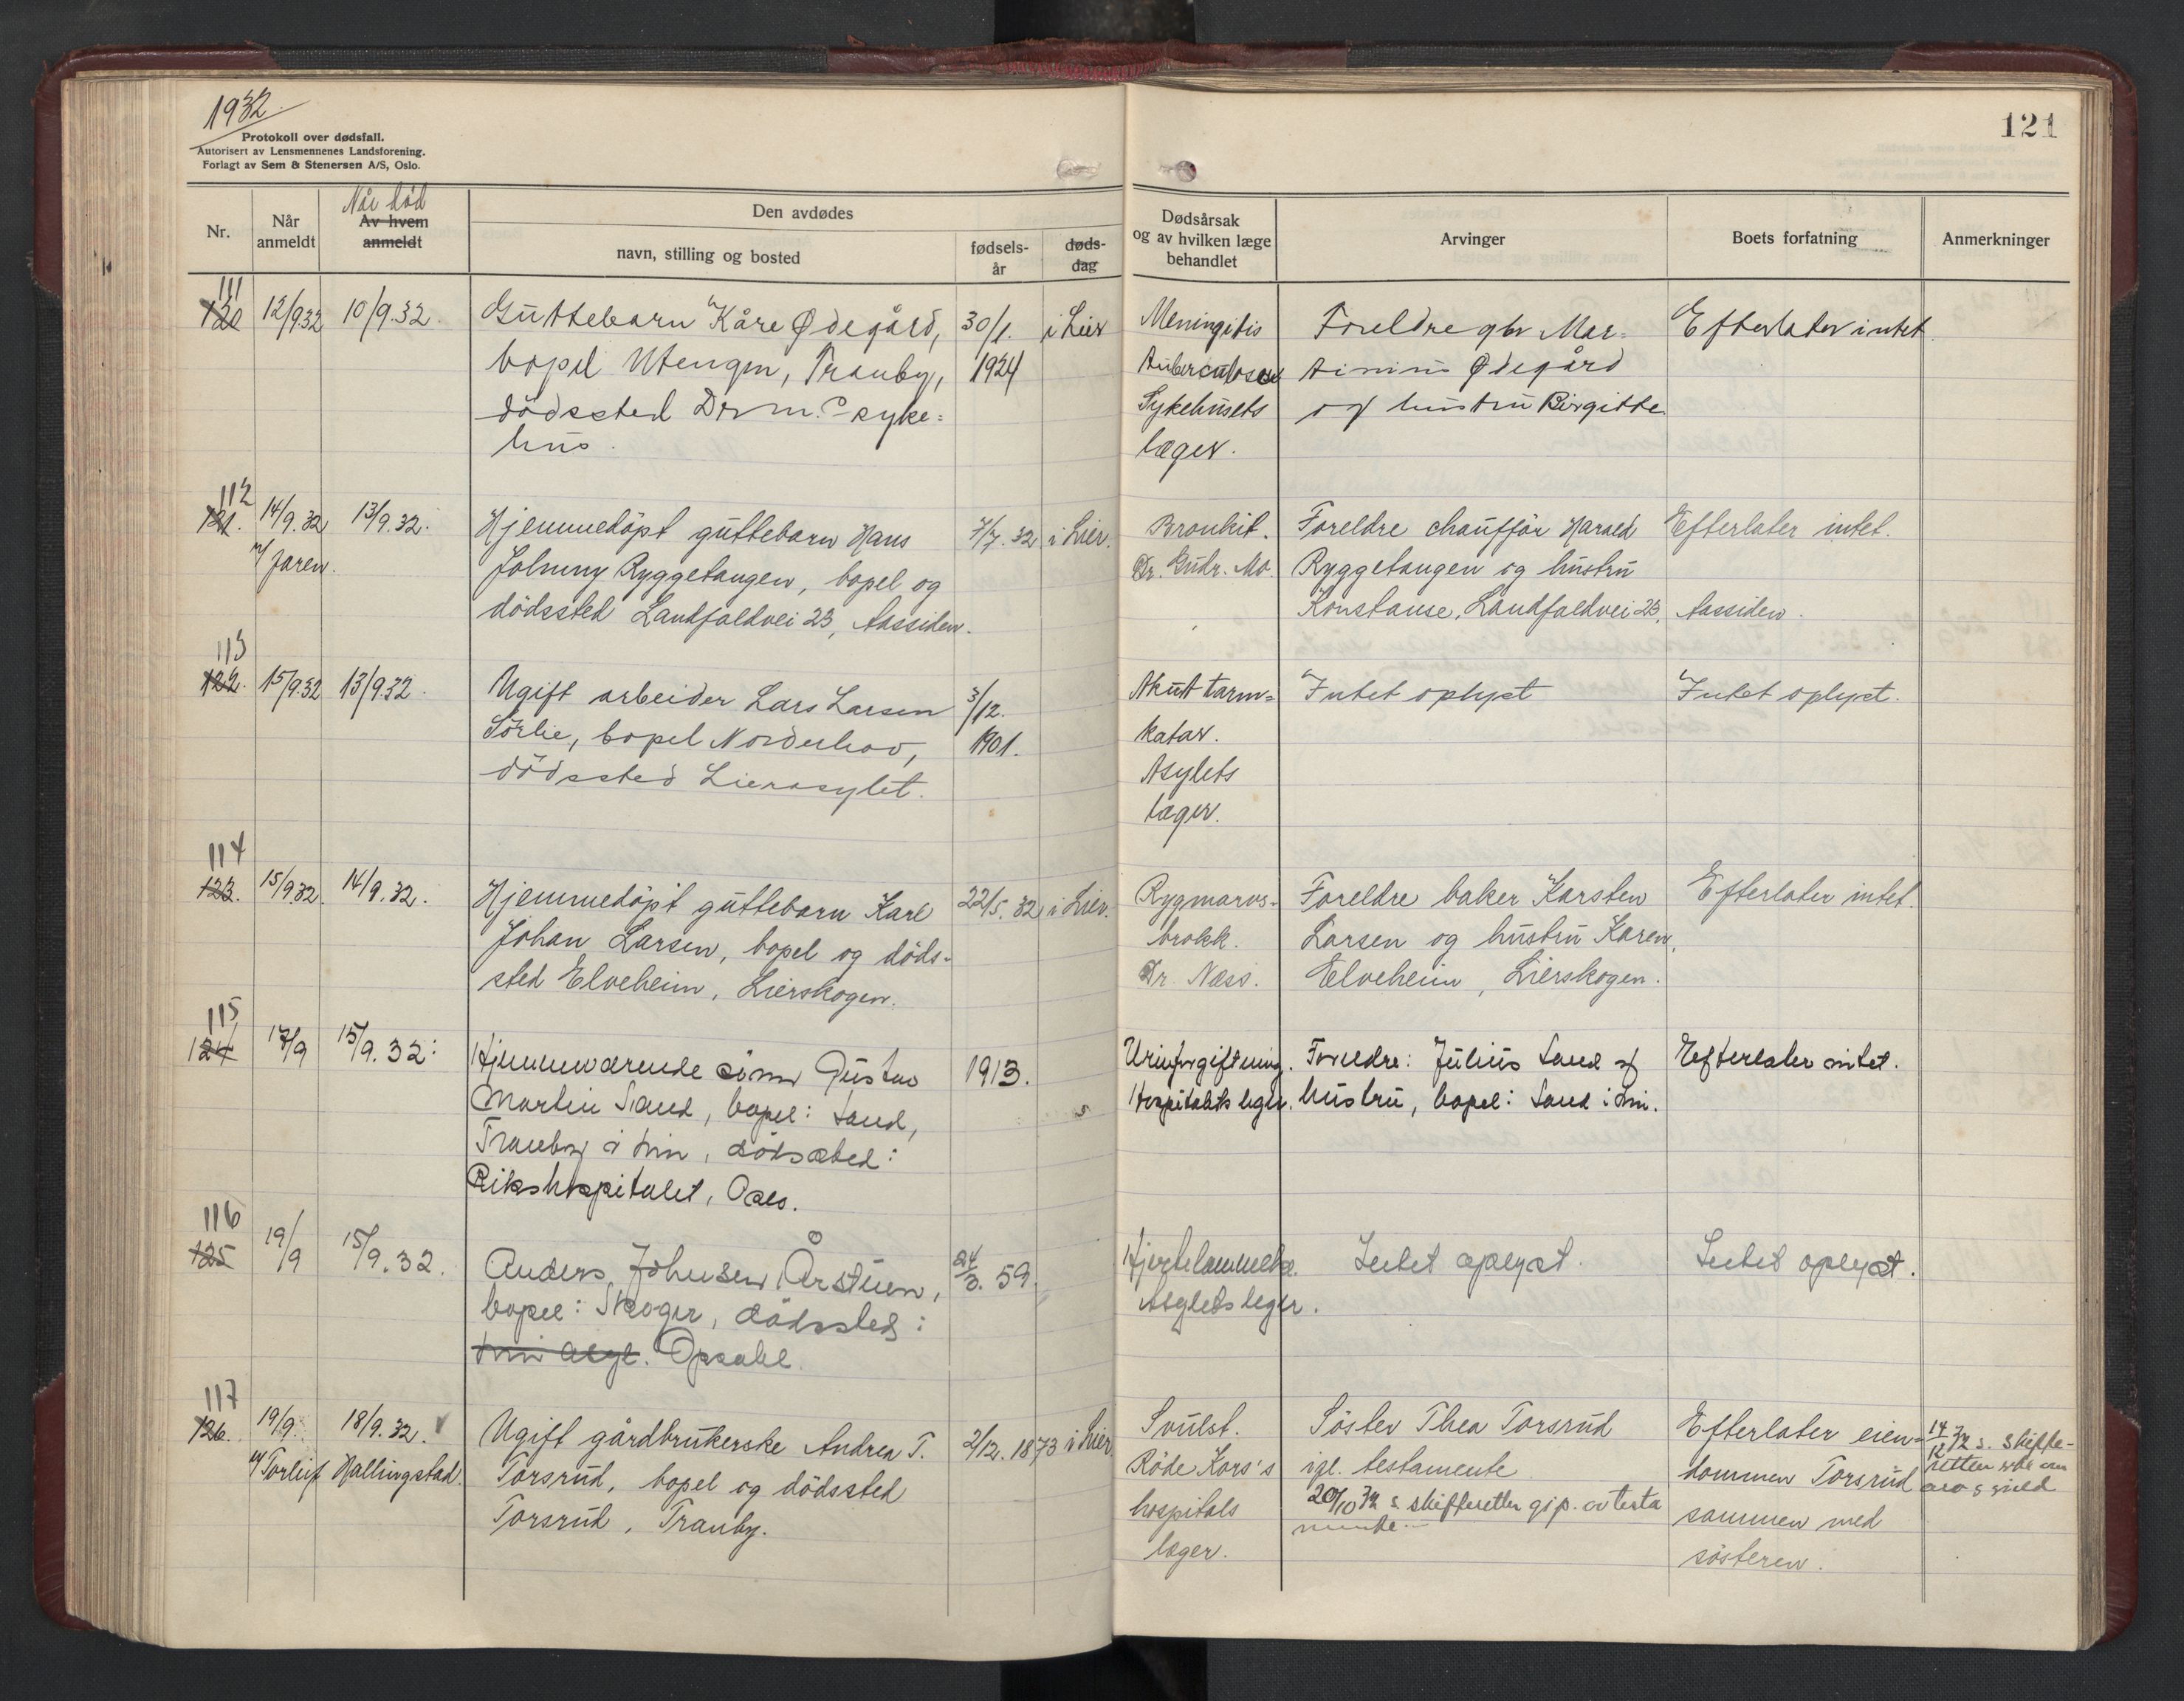 1932
Protokoll over dødsfall.
Autorisert av Lensmennenes Landsforening.
Forlagt av Sem & Stenersen A/S, Oslo.
121
Nr.
Når anmeldt
Når död
Av hvem anmeldt
Den avdødes
navn, stilling og bosted
fødsels-år
døds-dag
Dødsårsak
og av hvilken læge
behandlet
Arvinger
Boets forfatning
Anmerkninger
111
120 12/9.32 10/9.32. Guttebarn Kåre Ødegård, 30/1. i Lier
bopel Utengen, Tranby, 1924
dödssted Drm.s syke=
hus.
Meningitis
tuberculosa
Sykehusets
læger.
Foreldre gbr Mar=
tinius Ødegård
og hustru Birgitte.
Efterlater intet.
112
121. 14/9.32 13/9.32. Hjemmedöpt guttebarn Hans 7/7.32 i Lier.
v/ Jaren. Johnny Ryggetangen, bopel og
dödssted Landfaldvei 23, Aassiden.
Bronkit.
Dr. Gudr. Mo.
Foreldre chaufför Harald
Ryggetangen og hustru
Konstanse, Landfaldvei 23, Aassiden.
Efterlater intet.
113
122. 15/9.32 13/9.32. Ugift arbeider Lars Larsen 3/12.
Sörlie, bopel Norderhov, 1901.
dödssted Lierasylet.
Akut tarm=
katar.
Asylets
læger.
Intet oplyst
Intet oplyst.
114
123. 15/9.32. 14/9.32. Hjemmedöpt guttebarn Karl 22/5.32 i Lier.
Johan Larsen, bopel og döds-
sted Elveheim, Lierskogen.
Rygmarvs-
brokk.
Dr. Næss.
Foreldre baker Karsten
Larsen og hustru Karen,
Elveheim, Lierskogen.
Efterlater intet.
115
124 17/9 15/9.32. Hjemmeværende sönn Gustav 1913.
Martin Sand, bopel: Sand,
Tranby i Lier, dödssted:
Rikshospitalet, Oslo.
Urinforgiftning.
Hospitalets leger.
Foreldre: Julius Sand og
hustru, bopel: Sand i Lier.
Efterlater intet.
116
125 19/9 15/9.32. Anders Johnsen Årstuen, 24/3. 59.
bopel: Skoger, dödssted:
Lier asyl. Opsahl.
Hjertelammelse.
Asylets leger.
Intet oplyst.
Intet oplyst.
117
126. 19/9. 18/9.32. Ugift gårdbrukerske Andrea T. 2/12.1873 i Lier
v/ Torleif Hallingstad. Torsrud, bopel og dödssted
Torsrud, Tranby.
Svulst.
Röde Kors's
hospitals
læger.
Söster Thea Torsrud
igl. testamente
20/10 32 s. skifteretten gjp. av testa
mente.
Efterlater eien-
dommen Torsrud
sammen med
sösteren.
14/12 32 s. skifte-
retten